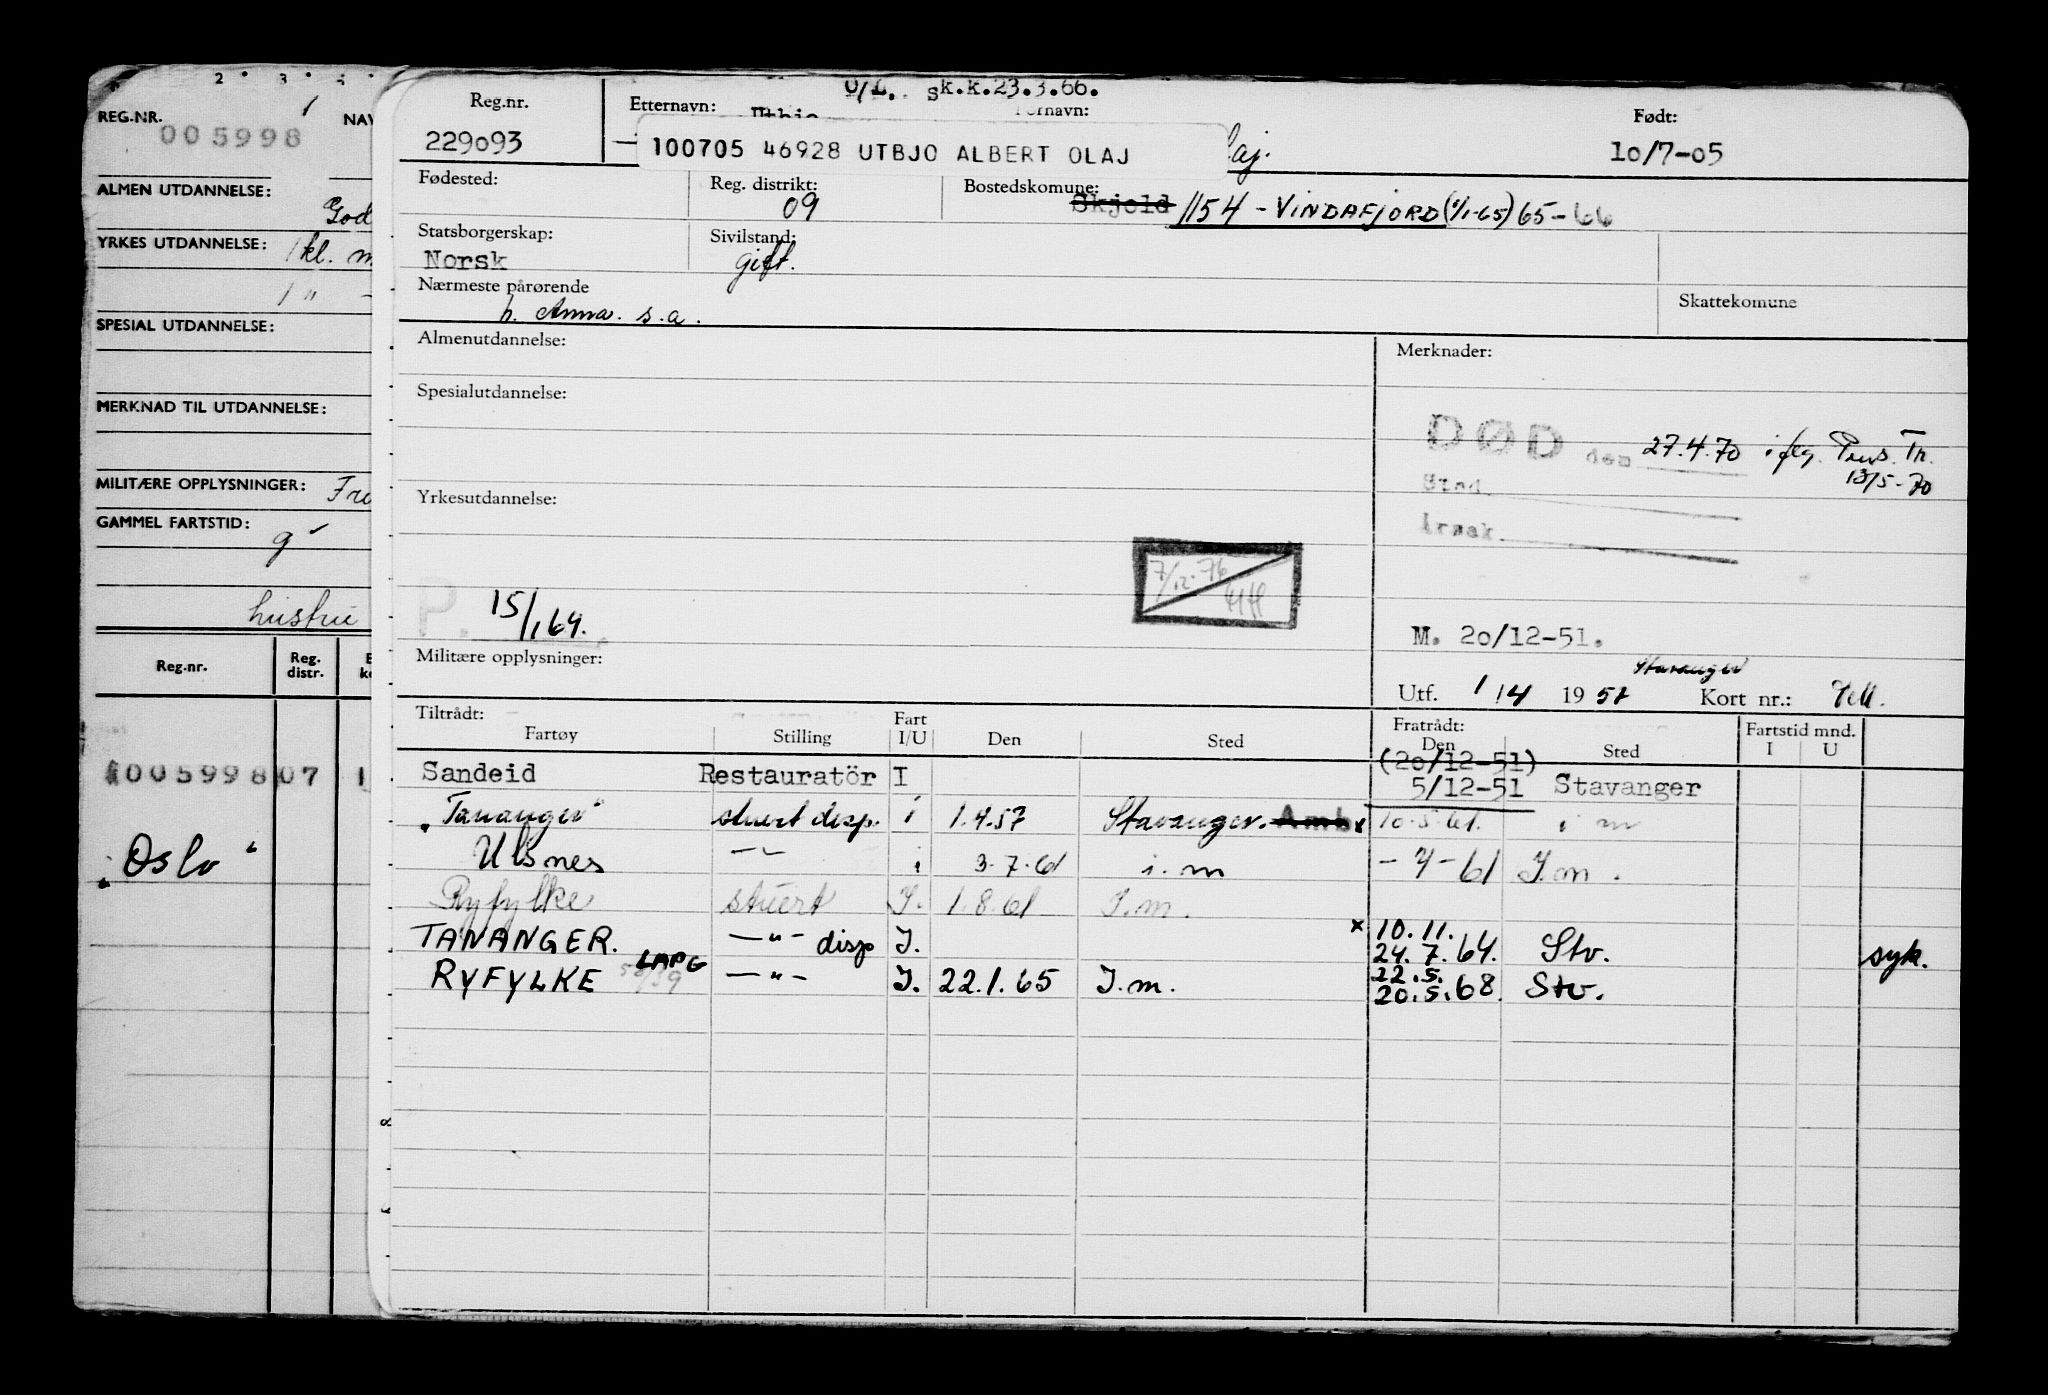 2 • 3 •
REG.NR. 005998 NAV
ALMEN UTDANNELSE: God
YRKES UTDANNELSE: 1 kl. m
1 " -
SPESIAL UTDANNELSE:
MERKNAD TIL UTDANNELSE:
MILITÆRE OPPLYSNINGER:
GAMMEL FARTSTID:
hustru
Reg.nr. Reg. distr.
005998 07 1
"Oslo"
O/L. sk.k.23.3.66.
Reg.nr. Etternavn: Fornavn: Født:
229093 100705 46928 UTBJO ALBERT OLAJ 10/7-05
Fødested: Reg. distrikt: Bostedskomune:
09 Skjold 1154 - VINDAFJORD (1/1-65) 65-66
Statsborgerskap: Sivilstand:
Norsk gift.
Nærmeste pårørende Skattekomune
h. Anna. s.a.
Almenutdannelse: Merknader:
Spesialutdannelse:
DØD den 27.4.70 iflg. Tr.
13/5-70
Sted.
Årsak.
Yrkesutdannelse:
7/12-76
P. 15/1 64.
M. 20/12-51.
Militære opplysninger:
Stavanger
Utf. 1/4 1957 Kort nr.:
Tiltrådt: Fratrådt: Fartstid mnd.
Fartøy Stilling Fart I/U Den Sted Den Sted I U
(20/12-51)
Sandeid Restauratör I 5/12-51 Stavanger
"Tananger" stuert disp. i 1.4.57 Stavanger. Amb x 10.5.61. i m
Ulsnes -"- i 3.7.61 i.m -7-61 I.m.
Ryfylke stuert I. 1.8.61 I.m.
TANANGER. -"- disp I. x 10.11.
24.7.64. Stv. syk.
RYFYLKE LAPG -"- I. 22.1.65 I.m. 22.5.
20.5.68. Stv.